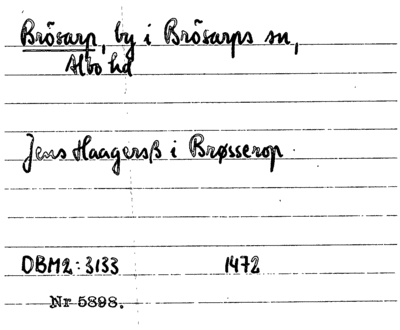 Brösarp, by i Brösarps sn,
Albo hd
Jens Haagersß i Brøsserop.
DBM2:3133 1472
Nr 5898.